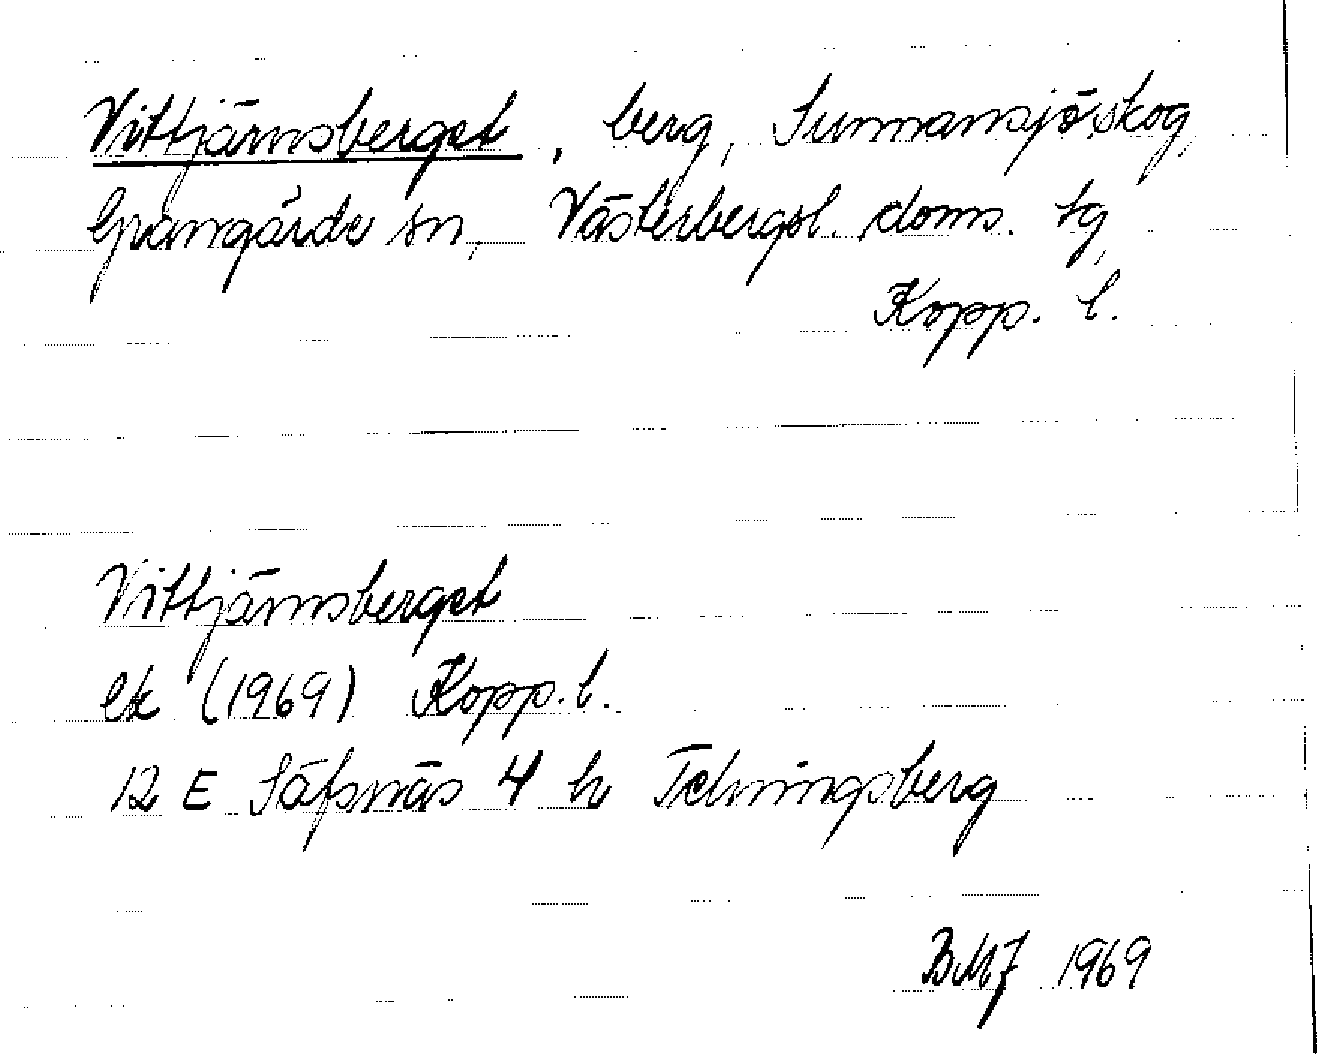 Vittjärnsberget, berg, Sunnansjö skog,
Grangärde sn, Västerbergsl. doms. tg,
Kopp. l.
Vittjärnsberget
ek (1969) Kopp. l.
12 E Säfsnäs 4 h
BMJ 1969